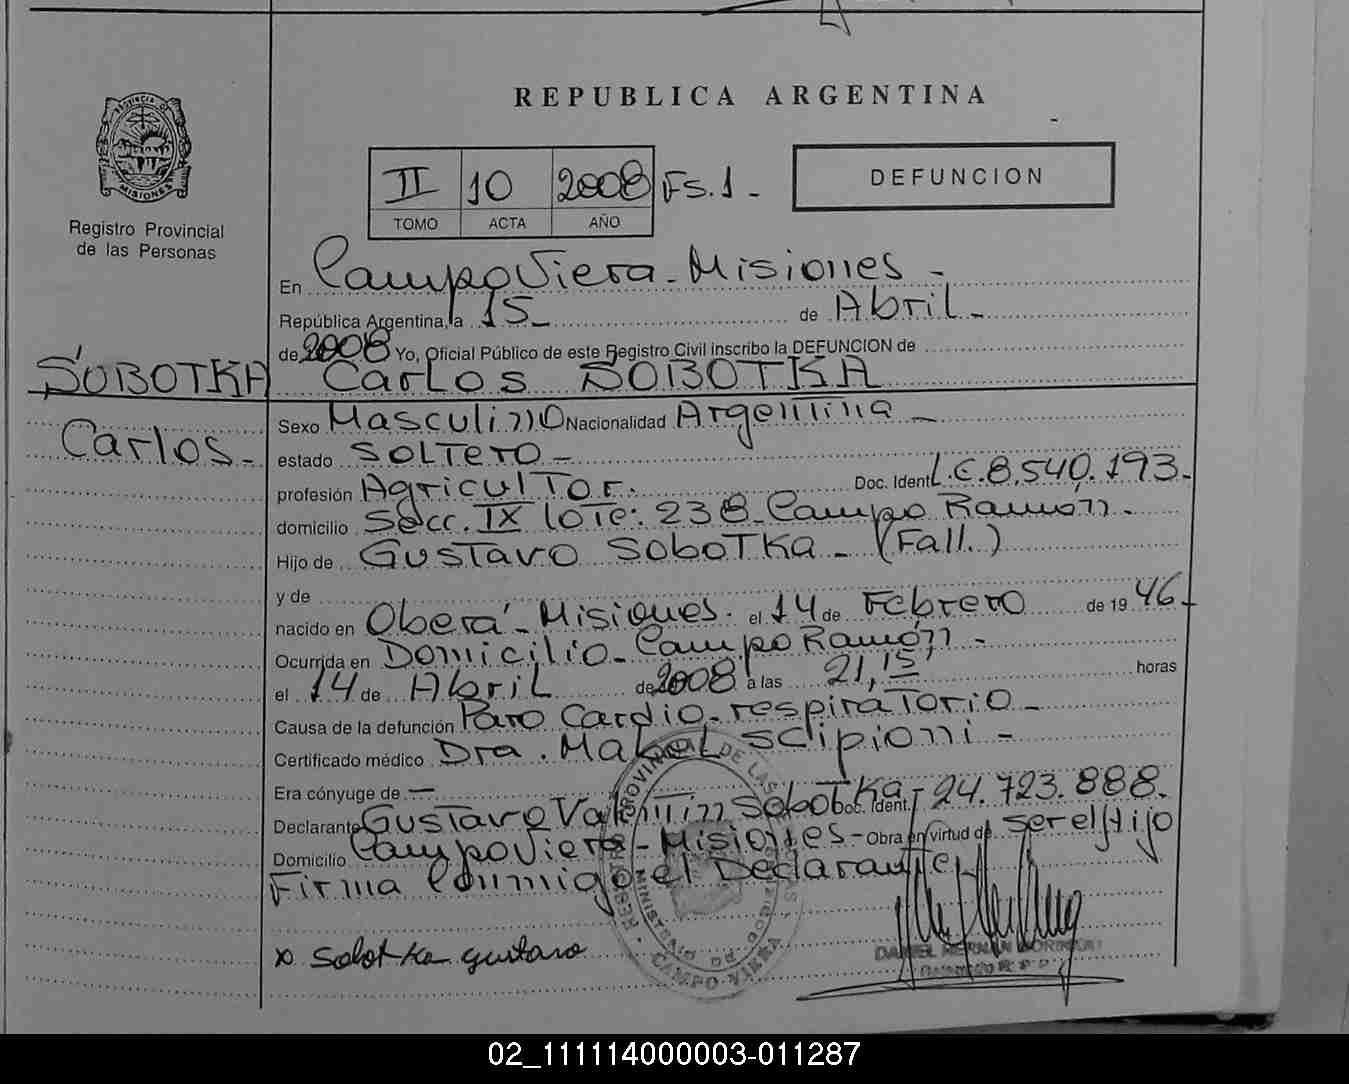 REPUBLICA ARGENTINA
PROVINCIA DE
MISIONES
Registro Provincial
de las Personas
II 10 2008 Fs. 1 -
TOMO ACTA AÑO
DEFUNCION
En Campo Viera - Misiones -
República Argentina, a 15 - de Abril -
de 2008 Yo, Oficial Público de este Registro Civil inscribo la DEFUNCION de
SOBOTKA Carlos SOBOTKA
Carlos -
Sexo Masculino Nacionalidad Argentina -
estado Soltero -
profesión Agricultor. Doc. Ident. L.E 8.540.193 -
domicilio Secc. IX lote: 238 - Campo Ramón -
Hijo de Gustavo Sobotka - (Fall.)
y de
nacido en Oberá - Misiones. el 14 de Febrero de 19 46 -
Ocurrida en Domicilio - Campo Ramón -
el 14 de Abril de 2008 a las 21,15 horas
Causa de la defunción Paro Cardio-respiratorio -
Certificado médico Dra. Mabel Scipioni -
Era cónyuge de —
Declarante Gustavo Valentin Sobotka - Doc. Ident. 24.723.888.
Domicilio Campo Viera - Misiones - Obra en virtud de ser el Hijo
Firma Conmigo el Declarante
x Sobotka gustavo
PROVINCIAL DE LAS
MINISTERIO DE
CAMPO VIERA
DANIEL HERNAN
02_111114000003-011287